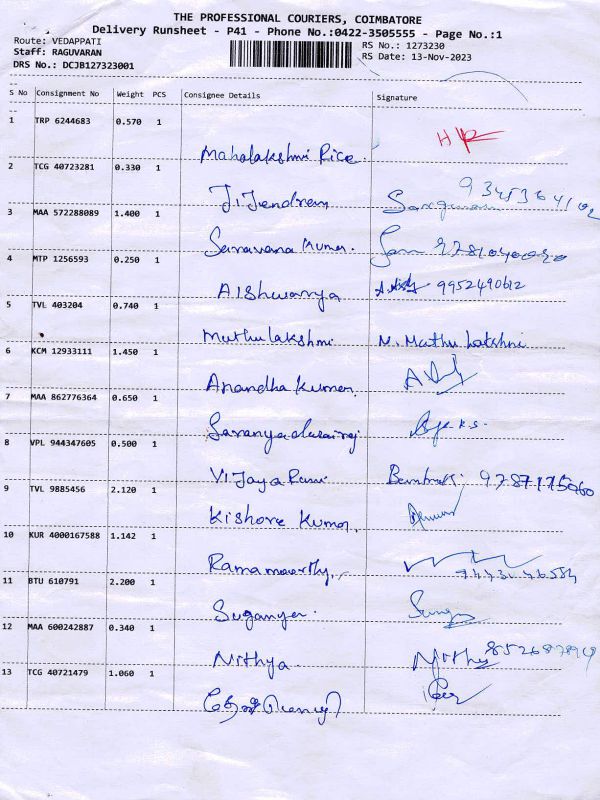 THE PROFESSIONAL COURIERS, COIMBATORE
Delivery Runsheet - P41 - Phone No.:0422-3505555 - Page No.:1
Route: VEDAPPATI
Staff: RAGUVARAN
DRS No.: DCJB127323001
RS No.: 1273230
RS Date: 13-Nov-2023
S No Consignment No Weight PCS Consignee Details Signature
1 TRP 6244683 0.570 1
Mahalakshmi Rice.
2 TCG 40723281 0.330 1
3 MAA 572288089 1.400 1
Saravana Kumar.
4 MTP 1256593 0.250 1
AIShwarya 9952490612
5 TVL 403204 0.740 1
Muthulakshmi M. Muthu lakshmi
6 KCM 12933111 1.450 1
Anandha Kumar.
7 MAA 862776364 0.650 1
8 VPL 944347605 0.500 1
VIJaya Rani
9 TVL 9885456 2.120 1
Kishore Kumar.
10 KUR 4000167588 1.142 1
Ramamoorthy.
11 BTU 610791 2.200 1
Suganya.
12 MAA 600242887 0.340 1
Nithya Nithy
13 TCG 40721479 1.060 1